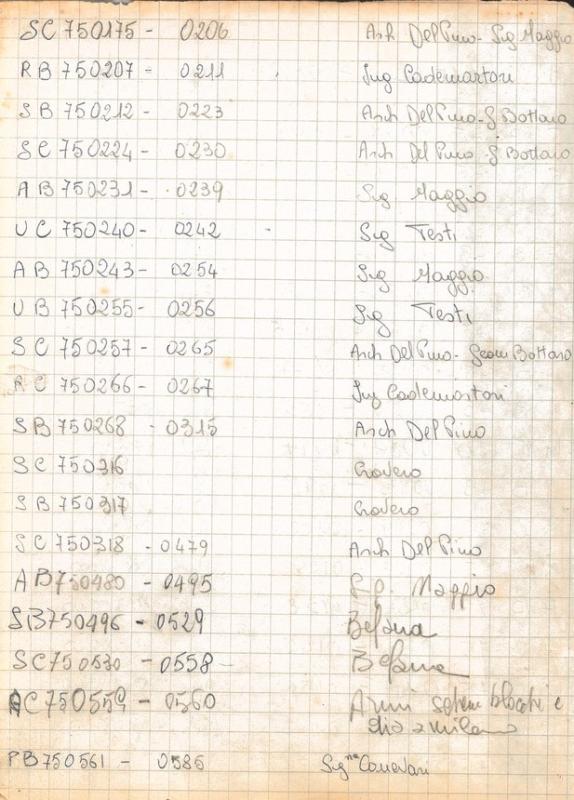 SC 750175 - 0206 Arch Del Pino - Sig Maggio
RB 750207 - 0211 Ing Cademartori
SB 750212 - 0223 Arch Del Pino - G Bottaro
SC 750224 - 0230 Arch Del Pino - G Bottaro
AB 750231 - 0239 Sig Maggio
UC 750240 - 0242 Sig Testi
AB 750243 - 0254 Sig Maggio
UB 750255 - 0256 Sig Testi
SC 750257 - 0265 Arch Del Pino - Geom Bottaro
RC 750266 - 0267 Ing Cademartori
SB 750268 - 0315 Arch Del Pino
SC 750316 Cravero
SB 750317 Cravero
SC 750318 - 0479 Arch Del Pino
AB 750480 - 0495 Maggio
SB 750496 - 0529 Befana
SC 750530 - 0558 Befana
C 750559 - 0560
a milano
PB 750561 - 0586 Sig.na Canevari